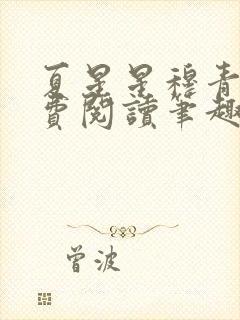 夏星星穆青
費閱讀筆趣
曾波